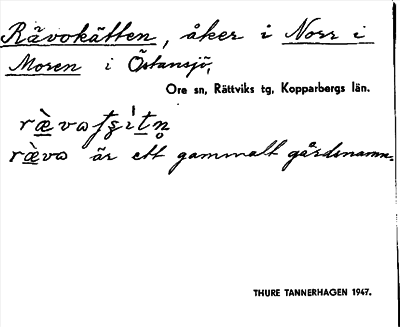 Rävokätten, åker i Norr i
Moren i Östansjö,
Ore sn, Rättviks tg, Kopparbergs län.
är ett gammalt gårdsnamn.
THURE TANNERHAGEN 1947.